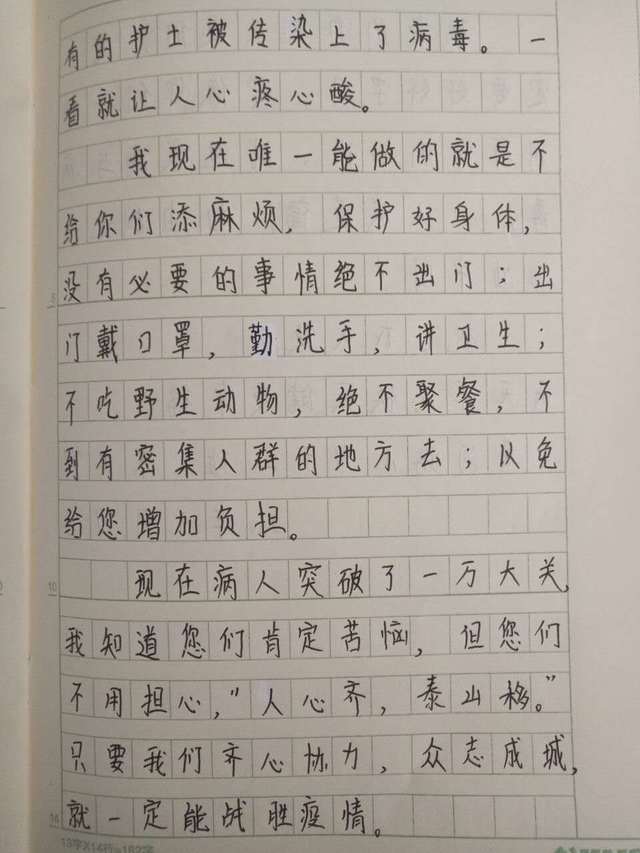 有的护士被传染上了病毒。一
看就让人心疼心酸。
我现在唯一能做的就是不
给你们添麻烦，保护好身体，
没有必要的事情绝不出门；出
门戴口罩，勤洗手，讲卫生；
不吃野生动物，绝不聚餐，不
到有密集人群的地方去；以免
给您增加负担。
现在病人突破了一万大关，
我知道您们肯定苦恼，但您们
不用担心，“人心齐，泰山移。”
只要我们齐心协力，众志成城，
就一定能战胜疫情。
5
10
13字X14行=182字